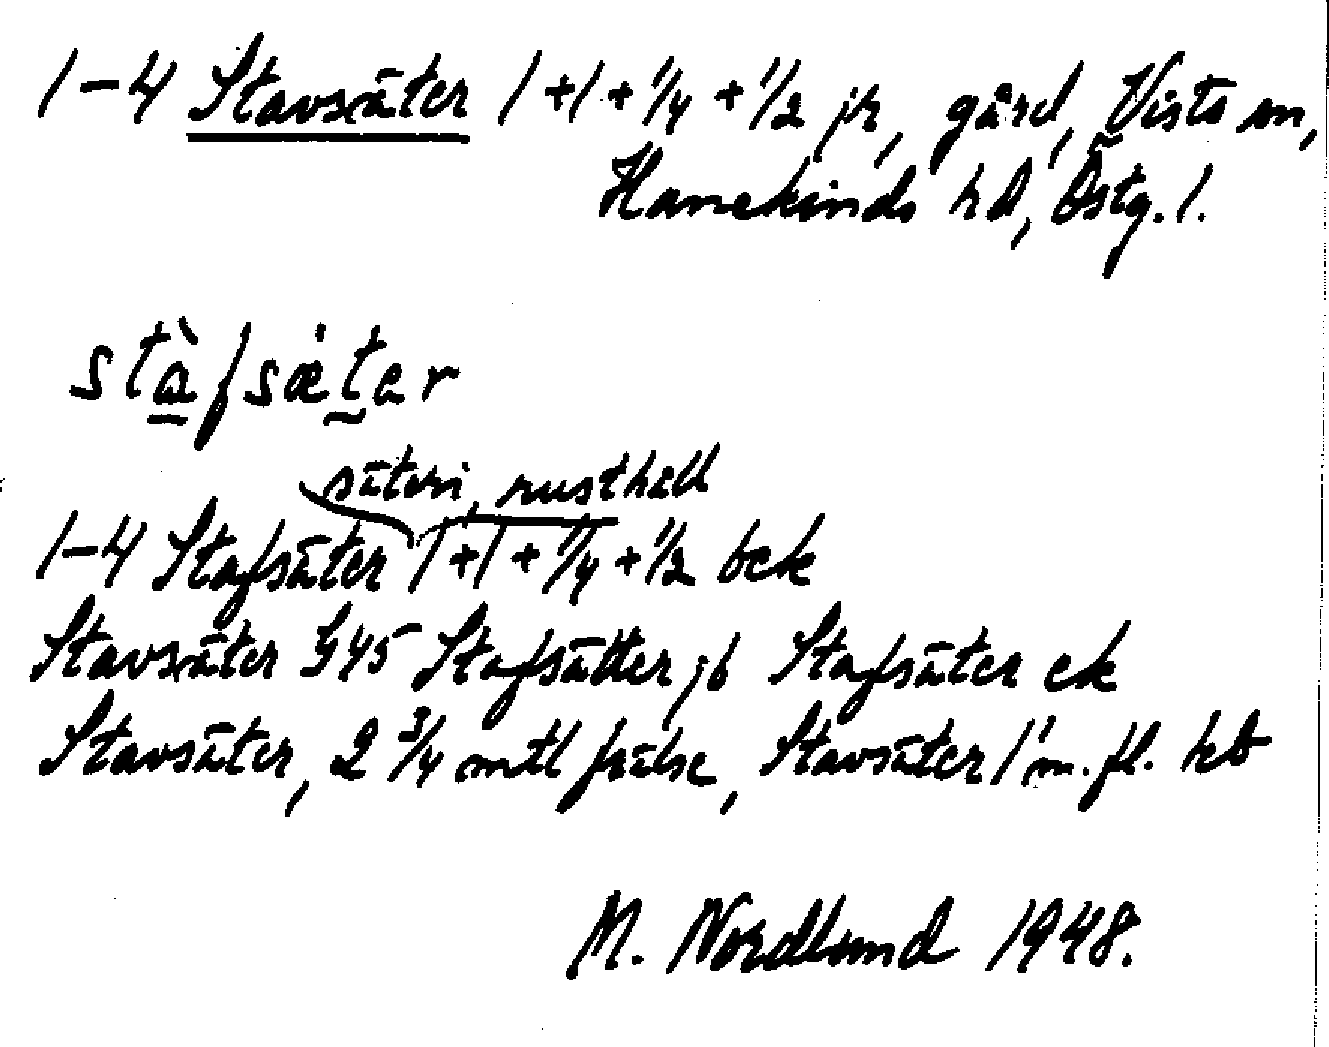 1-4 Stavsäter 1+1+1/4+1/2 jr, gård, Vists sn,
Hanekinds hd, Östg. l.
stàfsætar
säteri, rusthåll
1-4 Stafsäter 1+1+1/4+1/2 bek
Stavsäter G45 Stafsätter jb Stafsäter ek
Stavsäter, 2 3/4 mtl frälse, Stavsäter 1 m. fl. kb
M. Nordlund 1948.